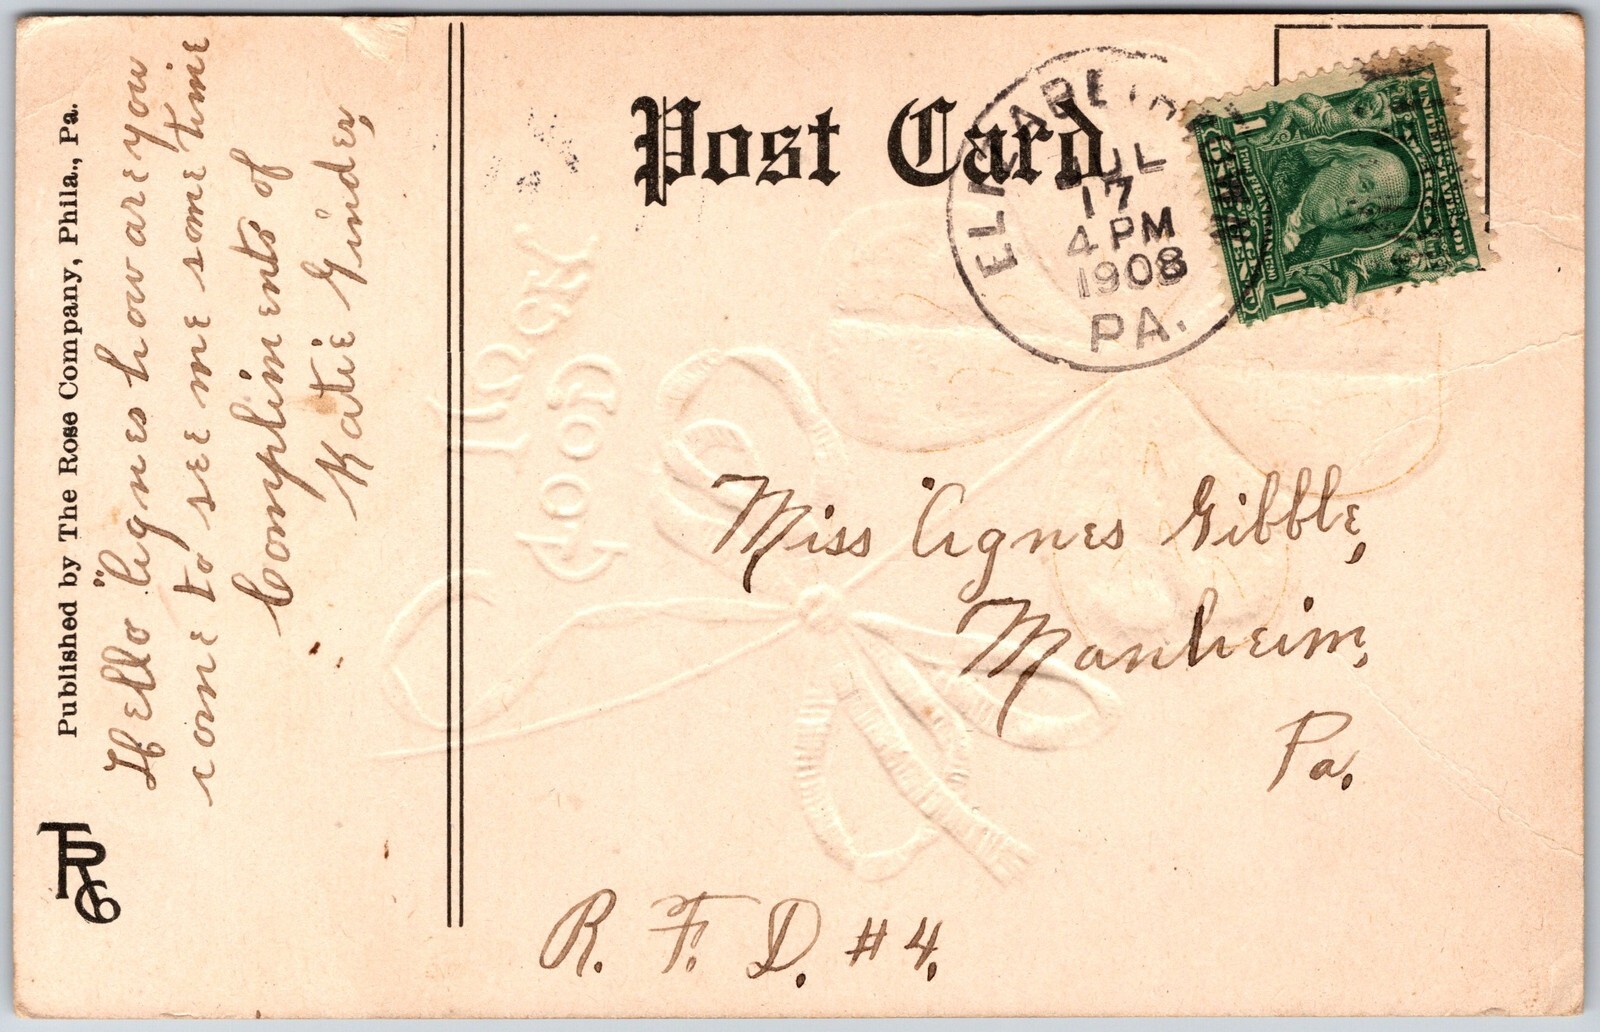 Published by The Rose Company, Phila., Pa.
TRC
Hello Agnes how are you
come to see me some time
Compliments of
Katie Ginder,
Post Card
JUL
17
4 PM
1908
PA.
GOOD
LUCK
Miss Agnes Gibble,
Manheim,
Pa.
R. F. D. #4.